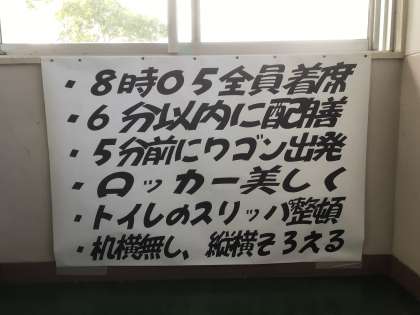 ・8時05全員着席
・6分以内に配膳
・5分前にワゴン出発
・ロッカー美しく
・トイレのスリッパ整頓
・机横無し、縦横そろえる